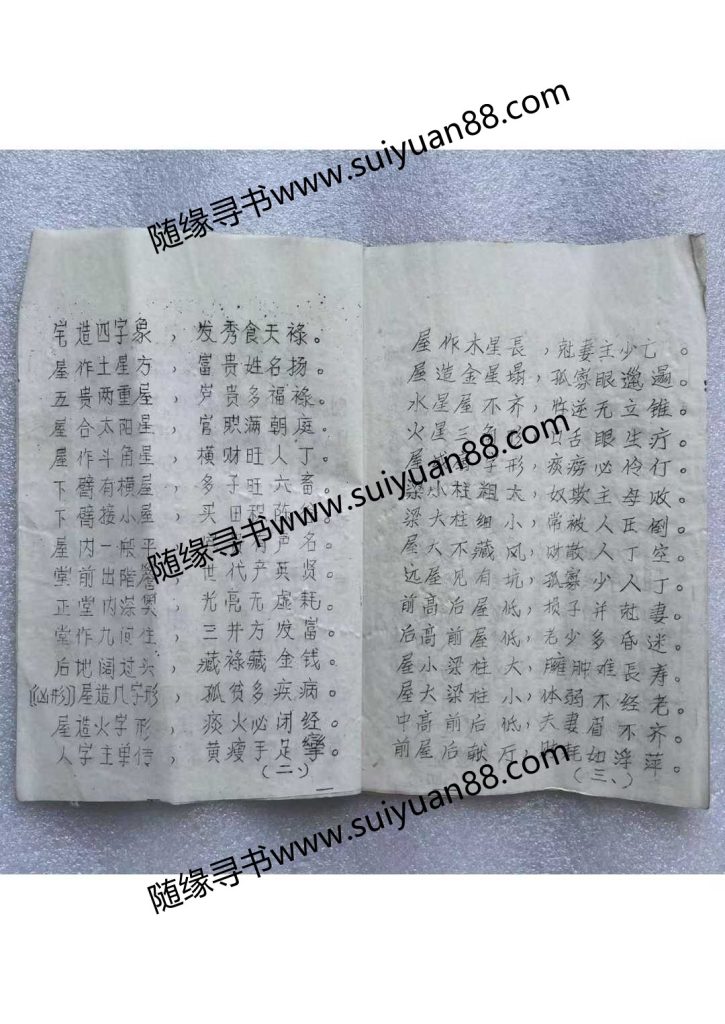 随缘寻书www.suiyuan88.com
宅造四字象，发秀食天禄。
屋作土星方，富贵姓名扬。
五贵两重屋，岁贵多福禄。
屋合太阳星，官职满朝庭。
屋作斗角星，横财旺人丁。
下臂有横屋，多子旺六畜。
下臂接小屋，买田
屋内一般平，声名
堂前出階，世代产英贤
正堂内深奥，光亮无虚耗。
堂作九间住，三井方发富。
后地阔过头，藏禄藏金钱。
(凶形)屋造几字形，孤贫多疾病。
屋造火字形，痰火必闭经。
人字主单传，黄瘦手足攣。
(二、)
屋作木星長，尅妻主少亡。
屋造金星塌，孤寡眼邋遢。
水星屋不齐，忤逆无立锥。
火星三角形，口舌眼生疔。
屋字形，痰痨必伶仃。
梁小柱粗大，奴欺主母败。
梁大柱细小，常被人压倒。
屋大不藏风，财散人丁空。
远屋见有坑，孤寡少人丁。
前高后屋低，损子并尅妻。
后高前屋低，老少多昏迷。
屋小梁柱大，臃肿难長寿。
屋大梁柱小，体弱不经老。
中高前后低，夫妻眉不齐。
前屋后献厅，幼浮萍。
(三、)
随缘寻书www.suiyuan88.com
随缘寻书www.suiyuan88.com